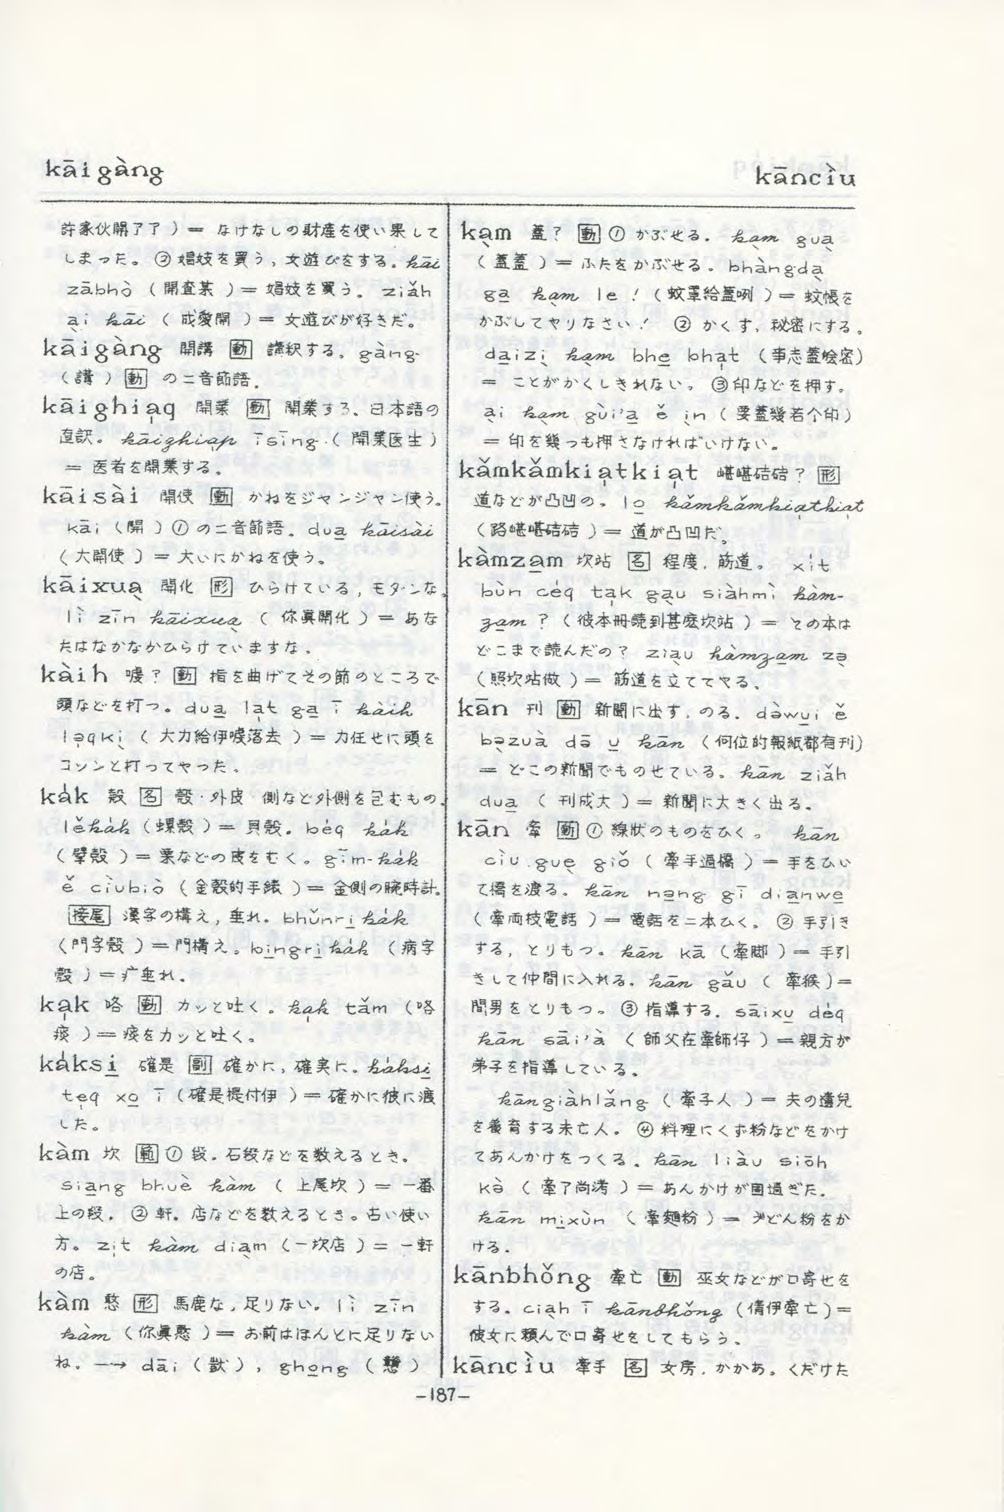 kāigàng
kāncìu
許家伙開了了）＝ なけなしの財産を使い果して
しまった。③娼妓を買う，女遊びをする。kāi
zābhò（開査某）＝娼妓を買う。ziăh
ại kāi（成愛開）＝女遊びが好きだ。
kāigàng 開講 動 講釈する。gàng-
（講）動 の二音節語．
kāighiạq 開業 動 開業する、日本語の
直訳。kāighiạp īsīng.（開業医生）
＝ 医者を開業する。
kāisài 開使 動 かねをジャンジャン使う。
kāi（開）①の二音節語。dua̱ kāisài
（大開使）＝大いにかねを使う。
kāixuạ 開化 形 ひらけている，モダンな。
lì zīn kāixuạ（你眞開化）＝あな
たはなかなかひらけていますな。
kàih ？動 指を曲げてその節のところで
頭などを打つ。dua̱ la̍t ga̱ ī kàih
lə̣qkị（大力給伊 落去）＝力任せに頭を
コツンと打ってやった．
ka̍k 殻 名 殻・外皮・側など外側を包むもの。
lěka̍k（螺殻）＝貝殻。béq ka̍k
（擘殻）＝栗などの皮をむく。gīm-ka̍k
ě cìubiò（金殻的手錶）＝金側の腕時計。
接尾 漢字の構え，垂れ。bhǔnri̱ ka̍k
（門字殻）＝門構え。bi̱ngri̱ ka̍k（病字
殻）＝疒垂れ．
kạk 咯 動 カッと吐く。kạk tăm（咯
痰）＝痰をカッと吐く。
ka̍ksi̱ 確是 副 確かに，確実に。ka̍ksi̱
tẹq xo̱ ī（確是提付伊）＝確かに彼に渡
した。
kàm 坎 範 ①段．石段などを数えるとき。
sia̱ng bhuè kàm（上尾坎）＝一番
上の段．②軒．店などを数えるとき。古い使い
方。zi̍t kàm diạm（一坎店）＝一軒
の店。
kàm 憨 形 馬鹿な，足りない。lì zīn
kàm（你眞憨）＝お前はほんとに足りない
ね。―→ dāi（獃），gho̱ng（戇）
kạm 蓋？動 ①かぶせる．kạm guạ
（蓋蓋）＝ふたをかぶせる。bhàngdạ
ga̱ kạm le！（蚊罩給蓋咧）＝蚊帳を
かぶしてやりなさい！ ②かくす，秘密にする。
da̱izị kạm bhe̱ bha̍t（事志蓋 密）
＝ ことがかくしきれない。③印などを押す。
ại kạm gùi'a ě ịn（要蓋幾若个印）
＝印を幾つも押さなければいけない。
kămkămkia̍tkia̍t 嵁嵁硈硈？形
道などが凸凹の．lo̱ kămkămkia̍tkia̍t
（路嵁嵁硈硈）＝道が凸凹だ。
kàmza̱m 坎站 名 程度．筋道。xi̍t
bùn céq ta̍k gạu siàhmì kàm-
za̱m？（彼本冊讀到甚麼坎站）＝その本は
どこまで読んだの？ ziạu kàmza̱m zə̣
（照坎站做）＝ 筋道を立ててやる、
kān 刊 動 新聞に出す，のる．dàwu̱i ě
bə̣zuà dō u̱ kān（何位的報紙都有刊）
＝ どこの新聞でものせている。kān ziăh
dua̱（刊成大）＝新聞に大きく出る。
kān 牽 動 ①線状のものをひく。kān
cìu guẹ giŏ（牽手過橋）＝手をひい
て橋を渡る．kān na̱ng gī dia̱nwe̱
（牽兩枝電話）＝電話を二本ひく。②手引き
する，とりもつ。kān kā（牽脚）＝手引
きして仲間に入れる．kān gău（牽猴）＝
間男をとりもつ。③指導する．sāixu̱ déq
kān sāi'à（師父在牽師仔）＝親方が
弟子を指導している。
kāngiàhlǎng（牽子人）＝夫の遺兒
を養育する未亡人．④料理にくず粉などをかけ
てあんかけをつくる．kān liàu siōh
kò（牽了尚涝）＝あんかけが固過ぎた．
kān mi̱xùn（牽麵粉）＝うどん粉をか
ける．
kānbhŏng 牽亡 動 巫女などが口寄せを
する．ciạh ī kānbhŏng（倩伊牽亡）＝
彼女に頼んで口寄せをしてもらう。
kāncìu 牽手 名 女房．かかあ。くだけた
-187-